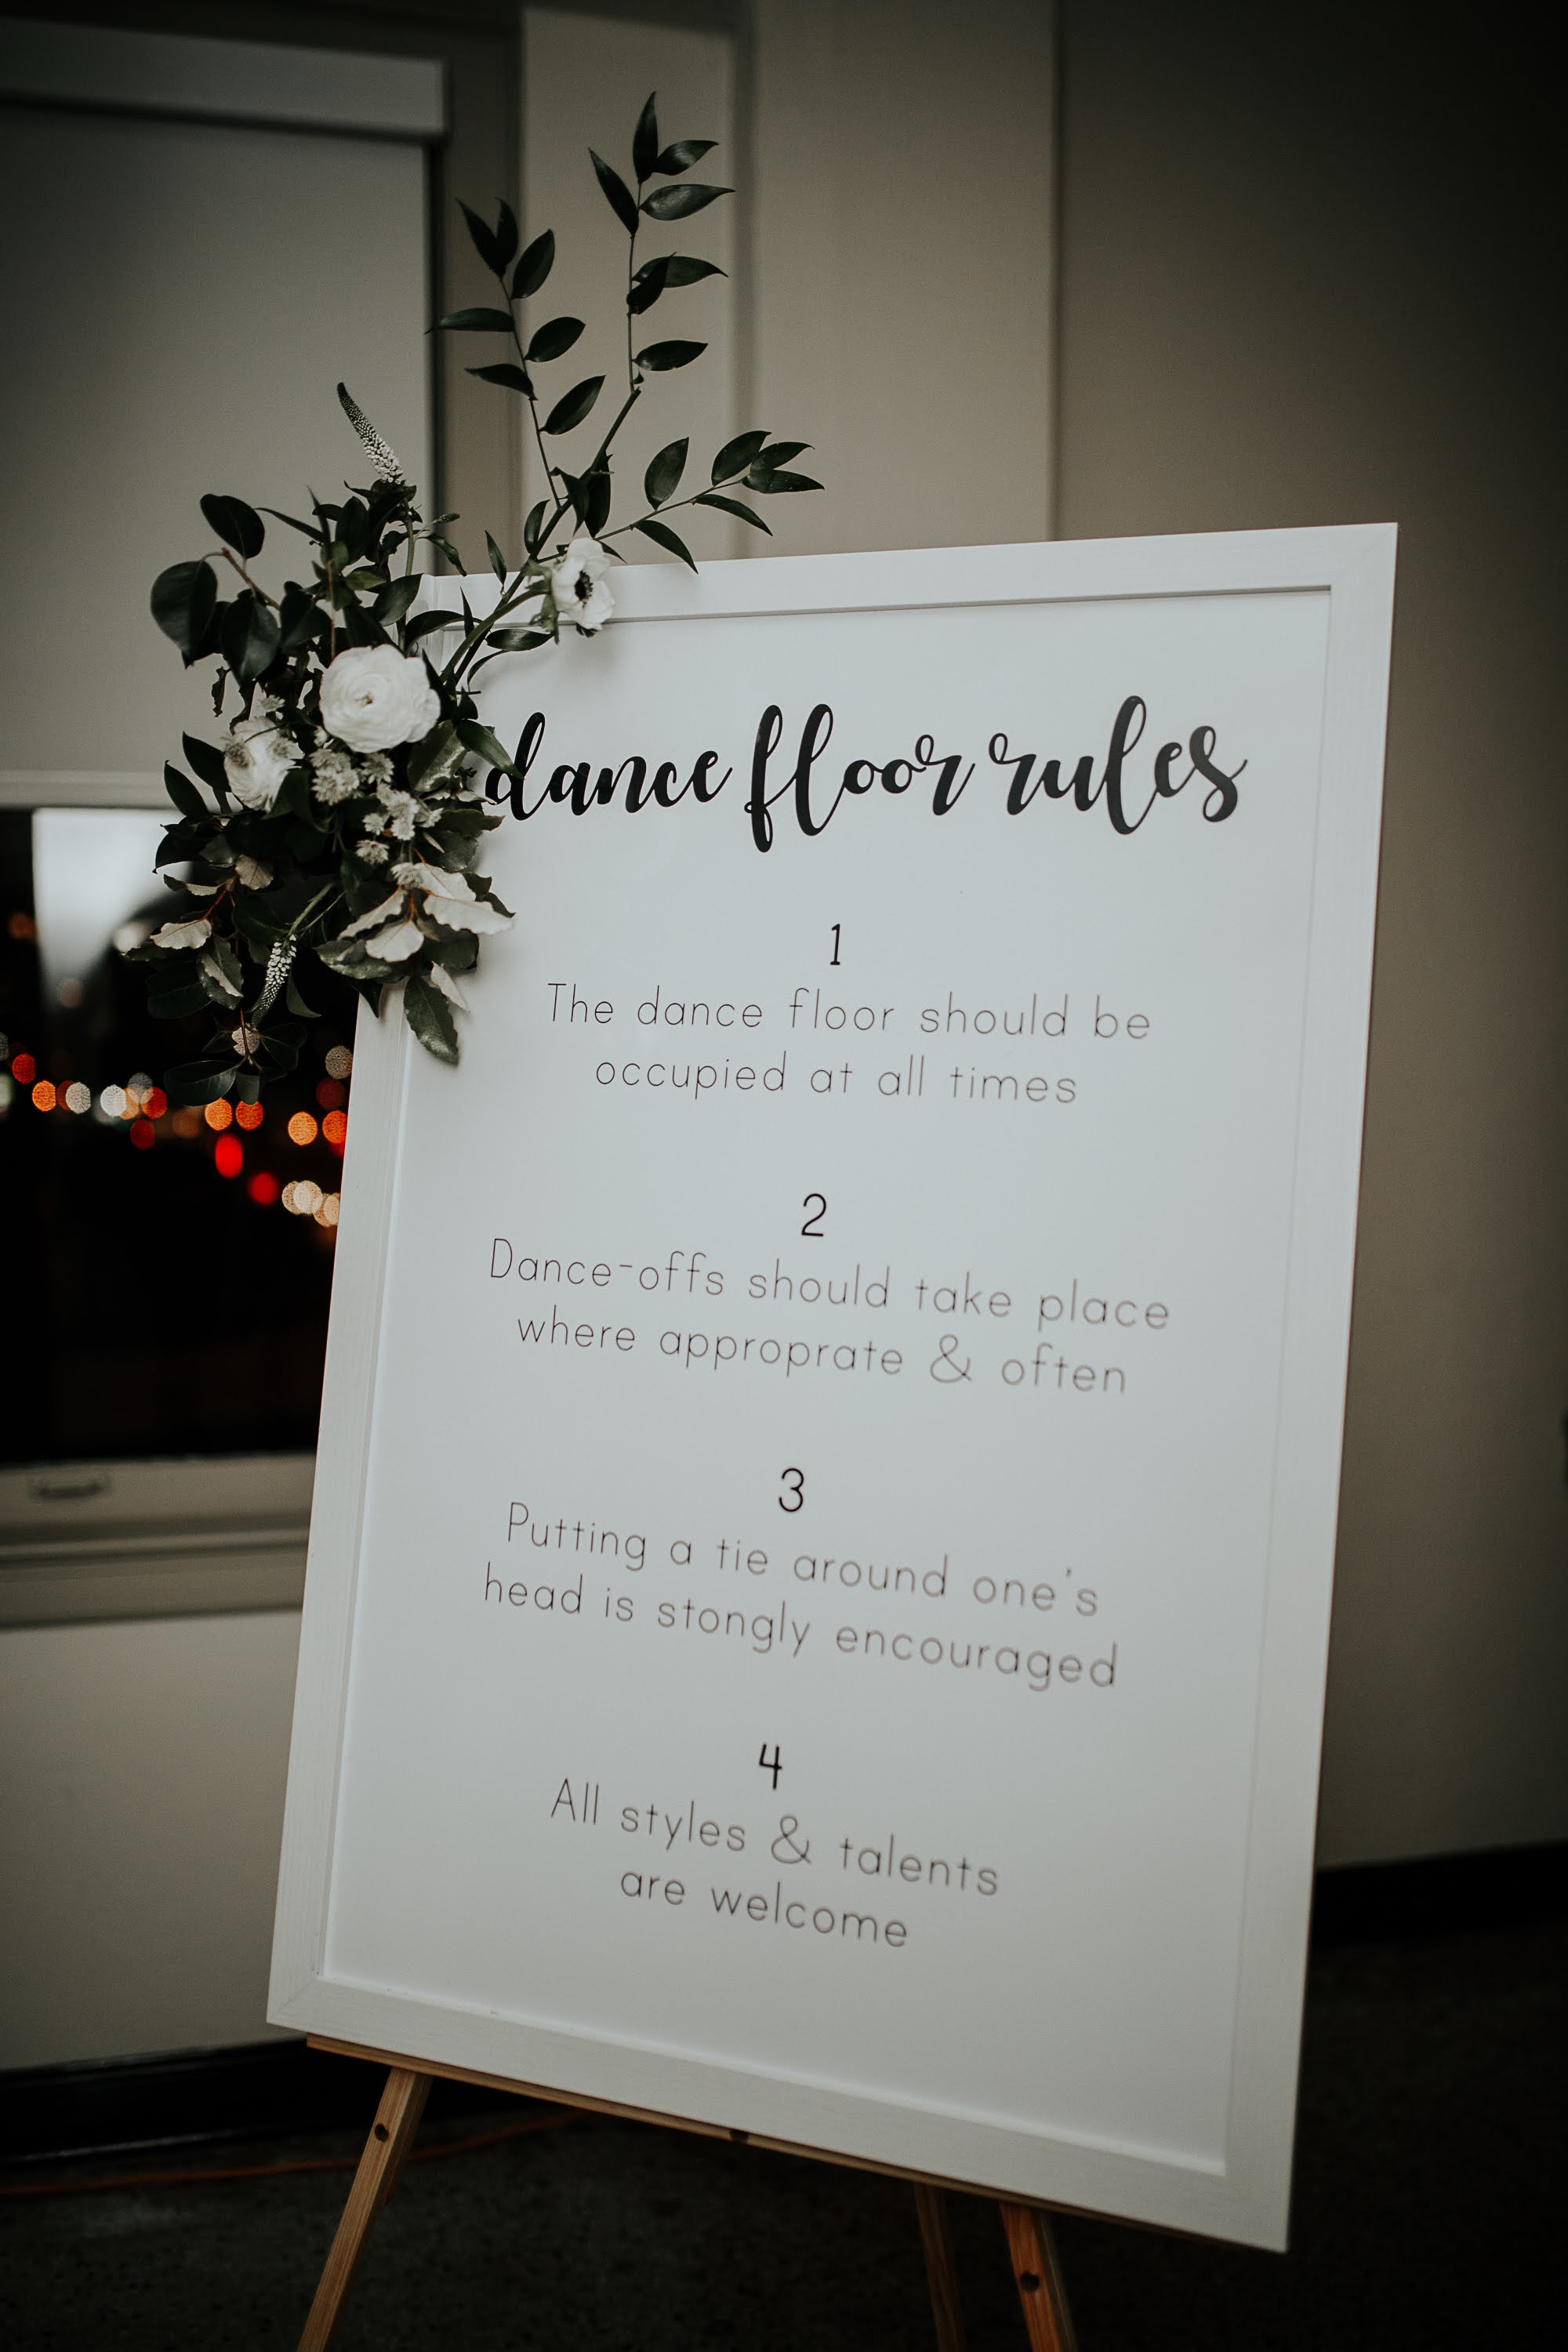 dance floor rules
1
The dance floor should be
occupied at all times
2
Dance-offs should take place
where approprate & often
3
Putting a tie around one's
head is stongly encouraged
4
All styles & talents
are welcome